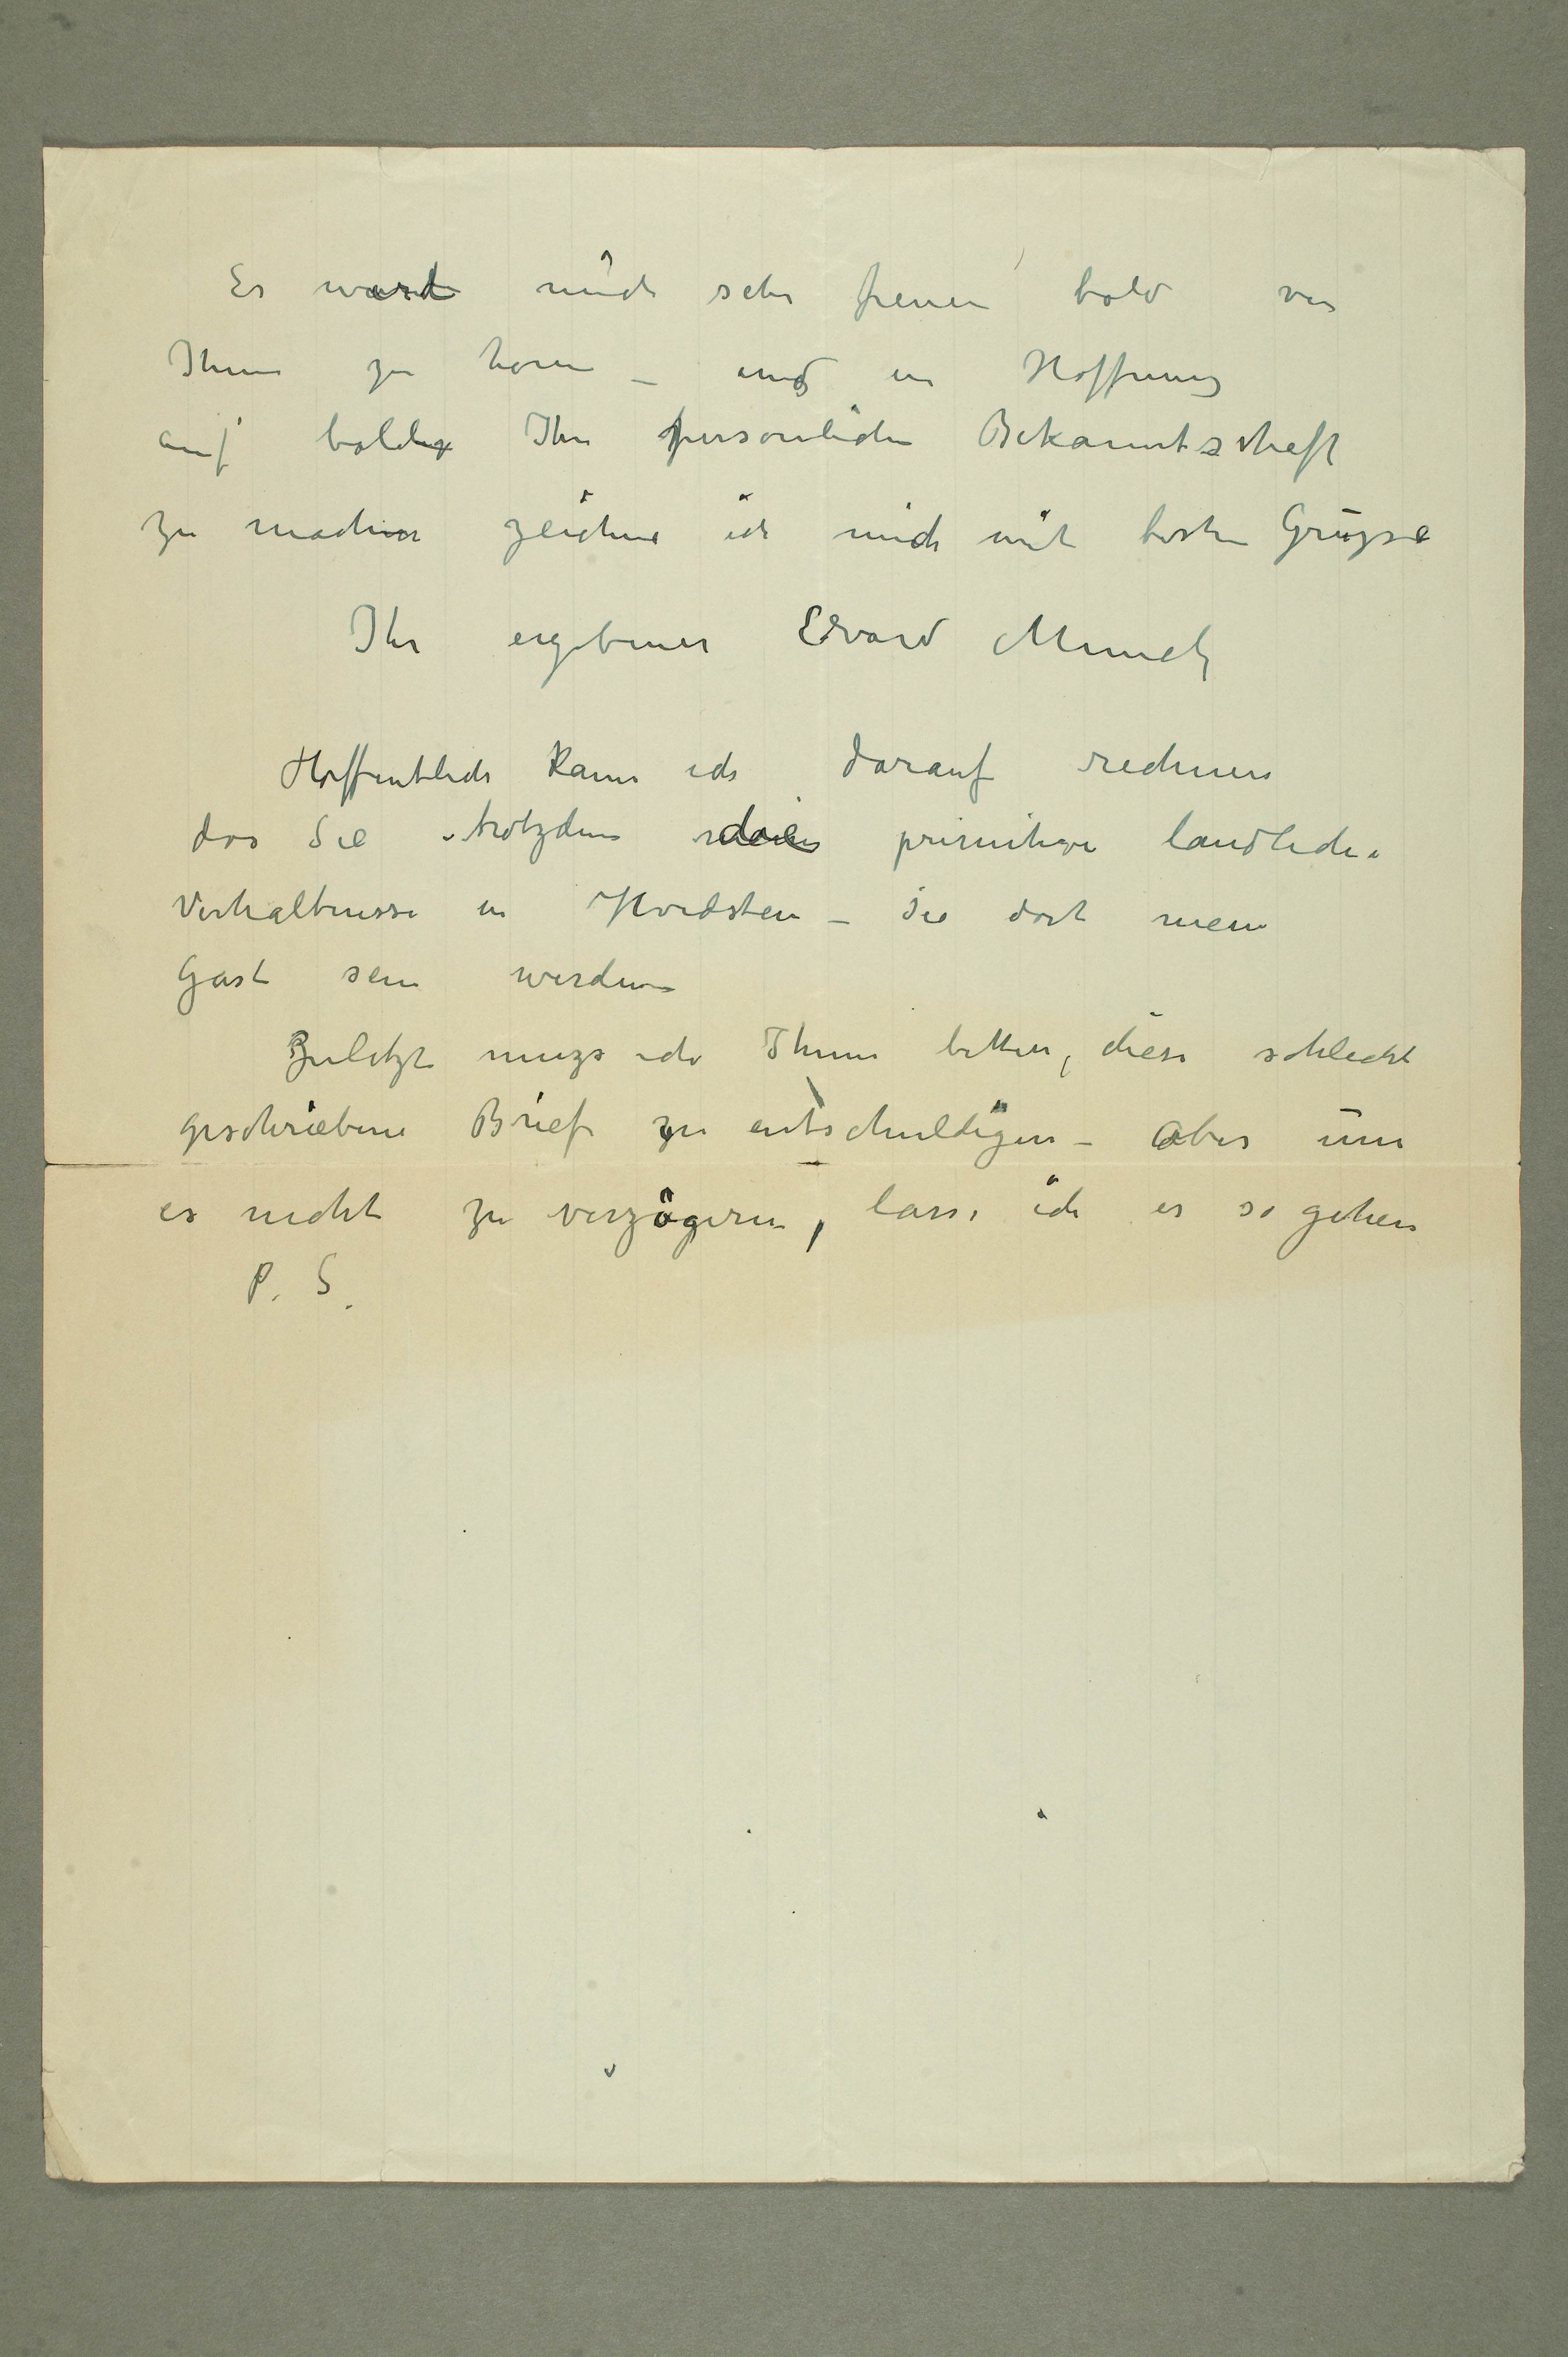 Es ward mich sehr freuen bald von
Ihnen zu hören – und in Hoffnung
auf baldig Ihre persönliche Bekanntschaft
zu machen zeichne ich mich mit besten Grüsse
Ihr ergebener Edvard Munch
Hoffentlich kann ich darauf rechnen
das Sie trotzdem primitive landliche
Verhaltnisse in Hvidsten – Sie dort mein
Gast sein werden
Zuletzt muzs ich Ihnen bitten, diese schlecht
geschriebene Briefe zu entschuldigen – aber um
es nicht zu verzögeren, lasse ich es so gehen
P. S.